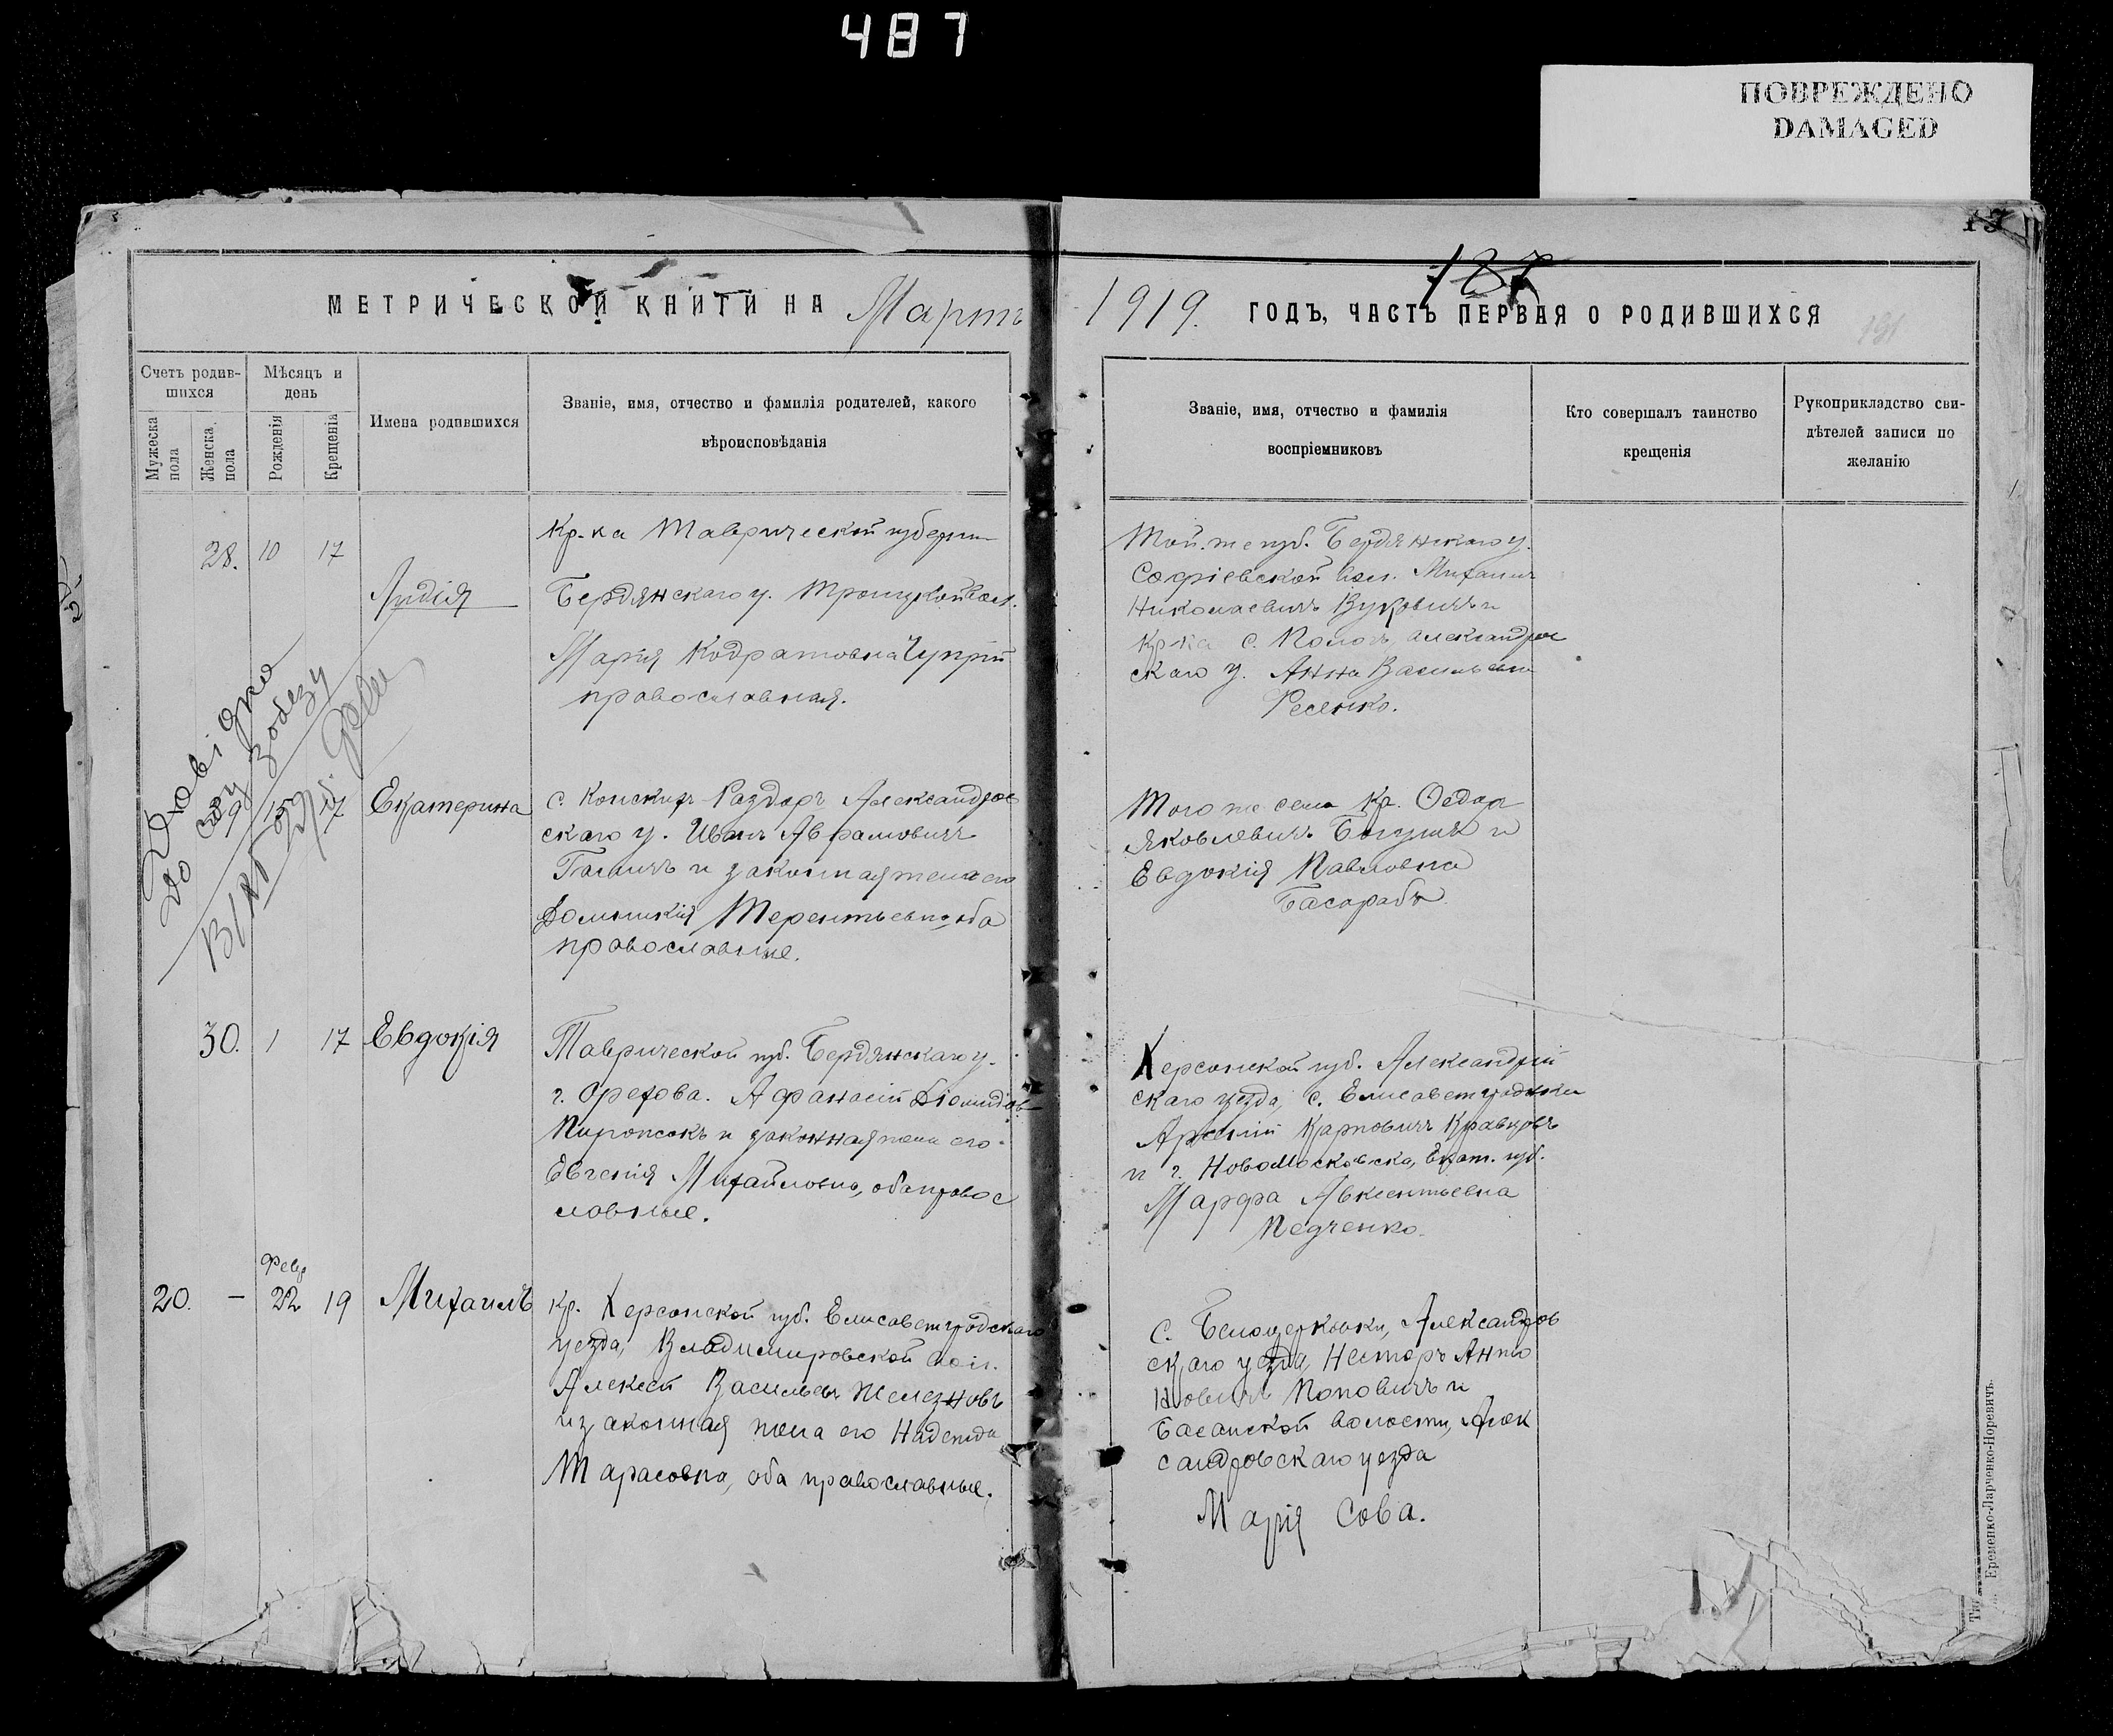 487
ПОВРЕЖДЕНО
DAMAGED
13
187
191
МЕТРИЧЕСКОЙ КНИГИ НА Мартъ
1919. ГОДЪ, ЧАСТЬ ПЕРВАЯ О РОДИВШИХСЯ
Счетъ родив-
шихся
Мужеска
пола
Женска
пола
Мѣсяцъ и
день
Рожденія
Крещенія
Имена родившихся
Званіе, имя, отчество и фамилія родителей, какого
вѣроисповѣданія
Званіе, имя, отчество и фамилія
воспріемниковъ
Кто совершалъ таинство
крещенія
Рукоприкладство сви-
дѣтелей записи по
желанію
28. 10 17
Лидія
Кр-ка Таврической губерни
Бердянскаго у. Троицкой вол.
Марія Кодратовна Чуприй
православная.
Той-же губ. Бердянскаго у.
Софіевской вол. Михаилъ
Николаевичъ Вуковичъ и
Кр-ка с. Пологъ Александров
скаго у. Анна Васильевна
Ресенко.
29 15 17
Екатерина
с. Конскихъ Раздоръ Александров
скаго у. Иванъ Аврамовичъ
и законная жена его
Домникія Терентьевна, оба
православные.
Того же села Кр. Федор
Яковлевичъ и
Евдокія Павловна
Басарабъ.
30. 1 17 Евдокія
Таврической губ. Бердянскаго у.
г. Орехова. Афанасій Діомидов
и законная жена его
Евгенія Михайловна, оба правос
лавные.
Херсонской губ. Александрій
скаго уезда, с. Елисаветградки
Арсений Карповичъ Кравцовъ
и г. Новомосковска, Екат. губ.
Марфа Авксентьевна
Педченко.
Февр
20. — 22 19 Михаилъ
кр. Херсонской губ. Елисаветградскаго
уезда, Владимировской вол.
Алексей Васильев Железновъ
и законная жена его Надежда
Тарасовна, оба православные.
с. Белоцерковки, Александров
скаго уезда Несторъ Анто
новичъ Поповичъ и
Басанской волости, Алек
сандровскаго уезда
Марія Сова.
Еременко-Ларченко-Норевичъ.